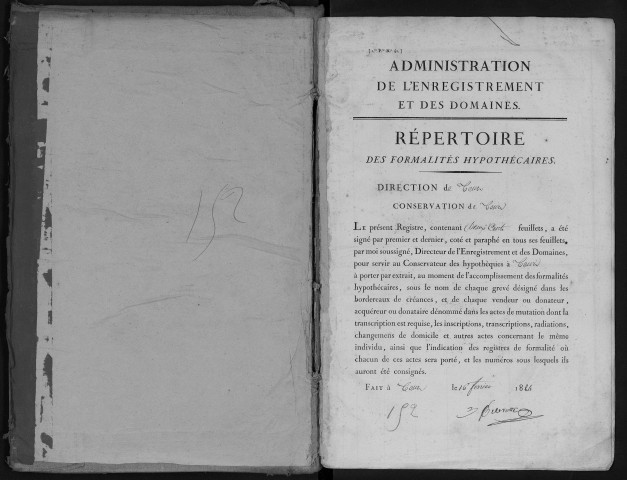 152
ADMINISTRATION
DE L'ENREGISTREMENT
ET DES DOMAINES.
RÉPERTOIRE
DES FORMALITÉS HYPOTHÉCAIRES.
DIRECTION de Tours
CONSERVATION de Tours
LE présent Registre, contenant Deux Cent feuillets, a été
signé par premier et dernier, coté et paraphé en tous ses feuillets,
par moi soussigné, Directeur de l'Enregistrement et des Domaines,
pour servir au Conservateur des hypothèques à Tours
à porter par extrait, au moment de l'accomplissement des formalités
hypothécaires, sous le nom de chaque grevé désigné dans les
bordereaux de créances, et de chaque vendeur ou donateur,
acquéreur ou donataire dénommé dans les actes de mutation dont la
transcription est requise, les inscriptions, transcriptions, radiations,
changemens de domicile et autres actes concernant le même
individu, ainsi que l'indication des registres de formalité où
chacun de ces actes sera porté, et les numéros sous lesquels ils
auront été consignés.
FAIT à Tours le 16 février 1824
152